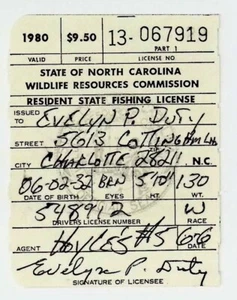 1980 $9.50 13-067919
VALID PRICE LICENSE NO
PART 1
STATE OF NORTH CAROLINA
WILDLIFE RESOURCES COMMISSION
RESIDENT STATE FISHING LICENSE
ISSUED TO EVELYN P. DUTY
STREET 5613 COTTINGHAM LN.
CITY CHARLOTTE 28211 N.C.
06-02-32 BRN 5'10" 130
DATE OF BIRTH EYES HT WT
548942 W
DRIVERS LICENSE NUMBER
AGENT HOYLES #5 606
Evelyn P. Duty
SIGNATURE OF LICENSEE